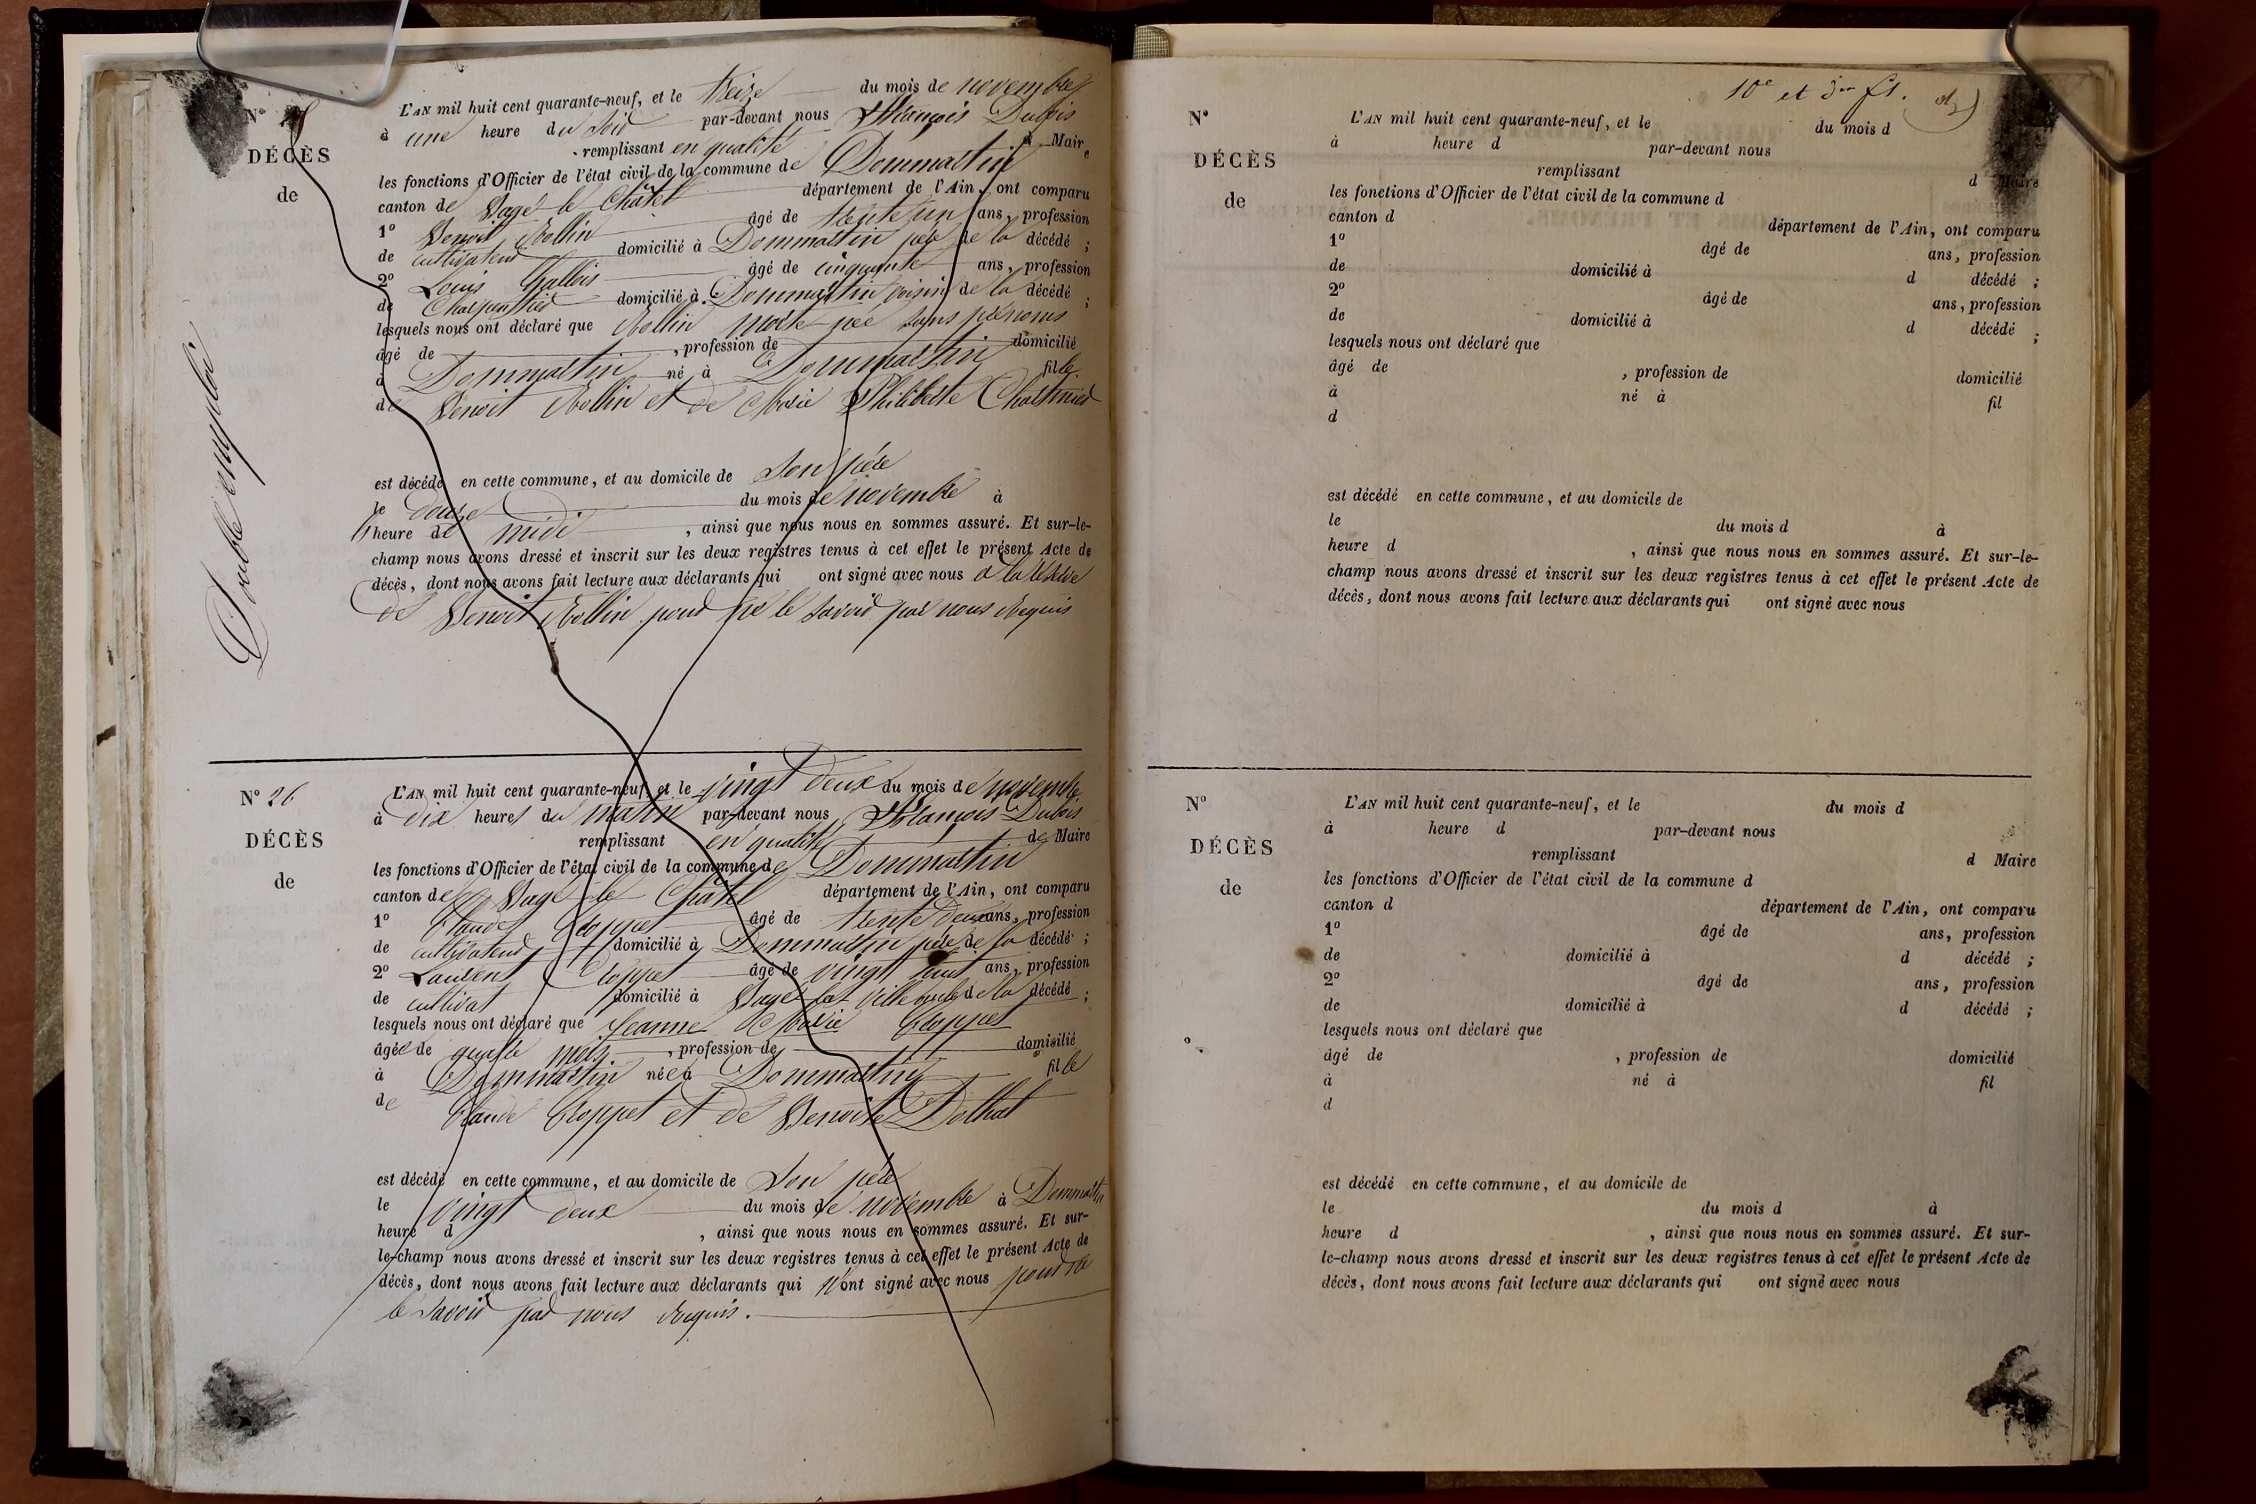 Nº
DÉCÈS
de
Double emploi
L'AN mil huit cent quarante-neuf, et le treize du mois de novembre
à une heure du soir par-devant nous François Dubois
remplissant en qualité d Maire
les fonctions d'Officier de l'état civil de la commune de Dommartin
canton de Bagé le Châtel département de l'Ain, ont comparu
1º Benoit Rollin âgé de trente un ans, profession
de cultivateur domicilié à Dommartin père de la décédé ;
2º Louis Gallois âgé de cinquante ans, profession
de Charpentier domicilié à Dommartin voisin de la décédé ;
lesquels nous ont déclaré que Rollin morte née sans prénoms
âgé de , profession de domicilié
à Dommartin né à Dommartin fille
de Benoit Rollin et de Marie Philiberte
est décédé en cette commune, et au domicile de son père
le douze du mois de novembre à
heure de midi , ainsi que nous nous en sommes assuré. Et sur-le-
champ nous avons dressé et inscrit sur les deux registres tenus à cet effet le présent Acte de
décès, dont nous avons fait lecture aux déclarants qui ont signé avec nous à la réserve
de Benoit Rollin pour ne le savoir par nous Requis
Nº 26
DÉCÈS
de
L'AN mil huit cent quarante-neuf, et le vingt deux du mois de novembre
à dix heures du matin par-devant nous François Dubois
remplissant en qualité de Maire
les fonctions d'Officier de l'état civil de la commune de Dommartin
canton de Bagé le Châtel département de l'Ain, ont comparu
1º Claude Cloppet âgé de trente deux ans, profession
de cultivateur domicilié à Dommartin père de la décédé ;
2º Laurent Cloppet âgé de vingt huit ans, profession
de cultivat domicilié à Bagé la ville oncle de la décédé ;
lesquels nous ont déclaré que Jeanne Marie Cloppet
âgée de quatre mois , profession de domicilié
à Dommartin née à Dommartin fille
de Claude Cloppet et de Benoite
est décédé en cette commune, et au domicile de son père
le vingt deux du mois de novembre à Dommartin
heure d , ainsi que nous nous en sommes assuré. Et sur-
le-champ nous avons dressé et inscrit sur les deux registres tenus à cet effet le présent Acte de
décès, dont nous avons fait lecture aux déclarants qui n'ont signé avec nous pour ne
le savoir par nous Requis.
10e et
Nº
DÉCÈS
de
L'AN mil huit cent quarante-neuf, et le du mois d
à heure d par-devant nous
remplissant d Maire
les fonctions d'Officier de l'état civil de la commune d
canton d département de l'Ain, ont comparu
1º âgé de ans, profession
de domicilié à d décédé ;
2º âgé de ans, profession
de domicilié à d décédé ;
lesquels nous ont déclaré que
âgé de , profession de domicilié
à né à fil
d
est décédé en cette commune, et au domicile de
le du mois d à
heure d , ainsi que nous nous en sommes assuré. Et sur-le-
champ nous avons dressé et inscrit sur les deux registres tenus à cet effet le présent Acte de
décès, dont nous avons fait lecture aux déclarants qui ont signé avec nous
Nº
DÉCÈS
de
L'AN mil huit cent quarante-neuf, et le du mois d
à heure d par-devant nous
remplissant d Maire
les fonctions d'Officier de l'état civil de la commune d
canton d département de l'Ain, ont comparu
1º âgé de ans, profession
de domicilié à d décédé ;
2º âgé de ans, profession
de domicilié à d décédé ;
lesquels nous ont déclaré que
âgé de , profession de domicilié
à né à fil
d
est décédé en cette commune, et au domicile de
le du mois d à
heure d , ainsi que nous nous en sommes assuré. Et sur-
le-champ nous avons dressé et inscrit sur les deux registres tenus à cet effet le présent Acte de
décès, dont nous avons fait lecture aux déclarants qui ont signé avec nous